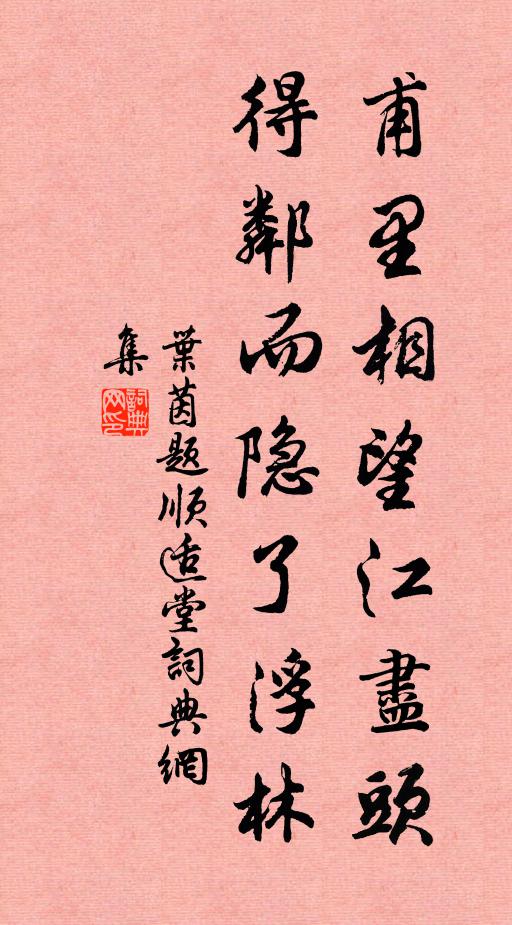 甫里相望江盡頭
得鄰而隐了浮林
葉茵题顺适堂詞典網
集
詞典网印